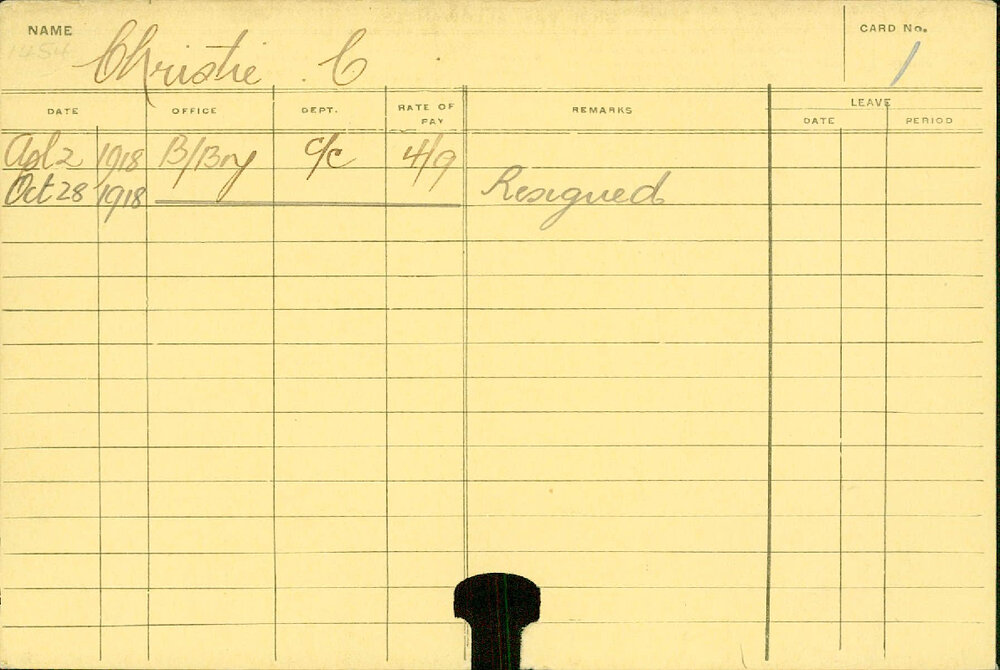 NAME
CARD No.
1454
Christie . C
1
DATE OFFICE DEPT. RATE OF PAY REMARKS LEAVE
DATE PERIOD
Apl 2 1918 B/Bry C/C 4/9
Oct 28 1918 Resigned